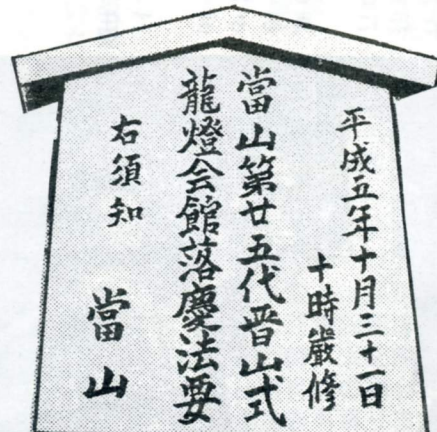 平成五年十月三十一日
十時嚴修
當山第廿五代晋山式
龍燈会館落慶法要
右須知
當山